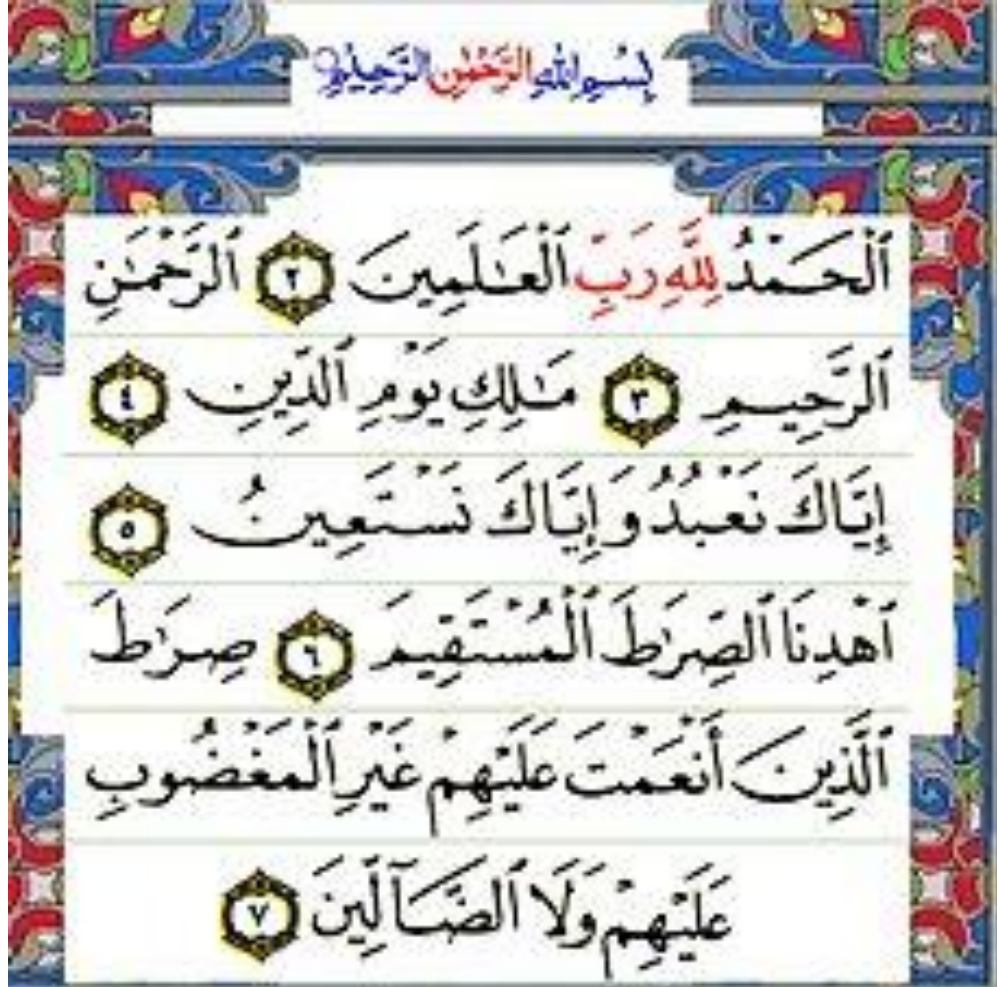 بِسْمِ اللَّهِ الرَّحْمَٰنِ الرَّحِيمِ
ٱلْحَمْدُ لِلَّهِ رَبِّ ٱلْعَٰلَمِينَ ٢ ٱلرَّحْمَٰنِ
ٱلرَّحِيمِ ٣ مَٰلِكِ يَوْمِ ٱلدِّينِ ٤
إِيَّاكَ نَعْبُدُ وَإِيَّاكَ نَسْتَعِينُ ٥
ٱهْدِنَا ٱلصِّرَٰطَ ٱلْمُسْتَقِيمَ ٦ صِرَٰطَ
ٱلَّذِينَ أَنْعَمْتَ عَلَيْهِمْ غَيْرِ ٱلْمَغْضُوبِ
عَلَيْهِمْ وَلَا ٱلضَّآلِّينَ ٧